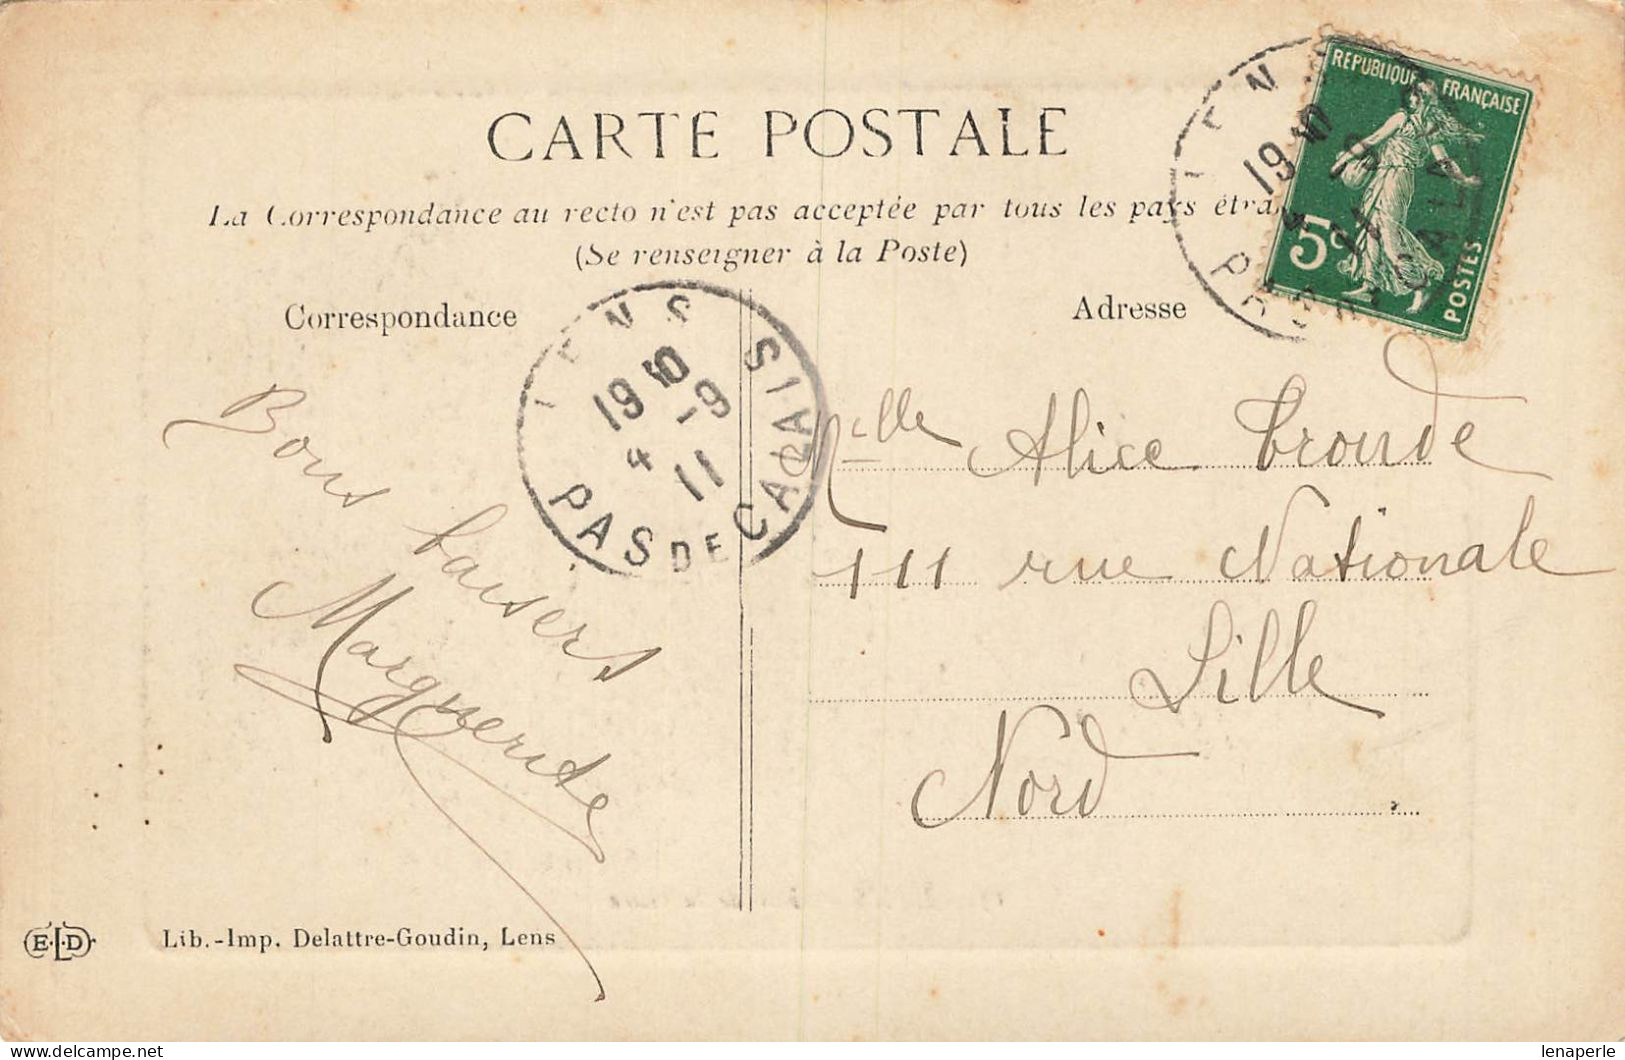 CARTE POSTALE
La Correspondance au recto n'est pas acceptée par tous les pays étran
(Se renseigner à la Poste)
Correspondance
Adresse
REPUBLIQUE FRANÇAISE
5c
POSTES
LENS
19 10
4 -9
11
PAS DE CALAIS
LENS
19 10
4 -9
11
PAS DE CALAIS
Bons baisers
Marguerite
Melle Alice Tronde
111 rue Nationale
Lille
Nord
E.L.D
Lib.-Imp. Delattre-Goudin, Lens
lenaperle